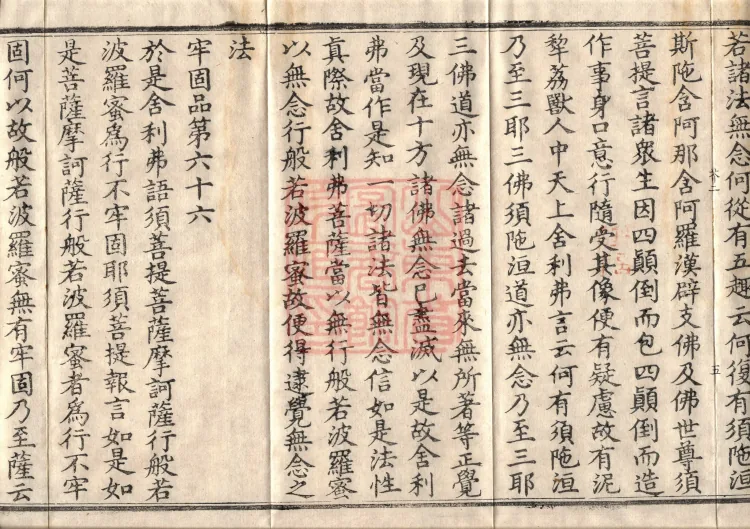 若諸法無念何從有五趣云何復有須陁洹
斯陁含阿那含阿羅漢辟支佛及佛世尊須
菩提言諸衆生因四顛倒而包四顛倒而造
作事身口意行隨受其像便有疑慮故有泥
犂荔獸人中天上舍利弗言云何有須陁洹
乃至三耶三佛須陁洹道亦無念乃至三耶
三佛道亦無念諸過去當來無所著等正覺
及現在十方諸佛無念已盡滅以是故舍利
弗當作是知一切諸法皆無念信如是法性
真際故舍利弗菩薩當以無行般若波羅蜜
以無念行般若波羅蜜故便得逮覺無念之
法
牢固品第六十六
於是舍利弗語須菩提菩薩摩訶薩行般若
波羅蜜爲行不牢固耶須菩提報言如是如
是菩薩摩訶薩行般若波羅蜜者爲行不牢
固何以故般若波羅蜜無有牢固乃至薩云
五